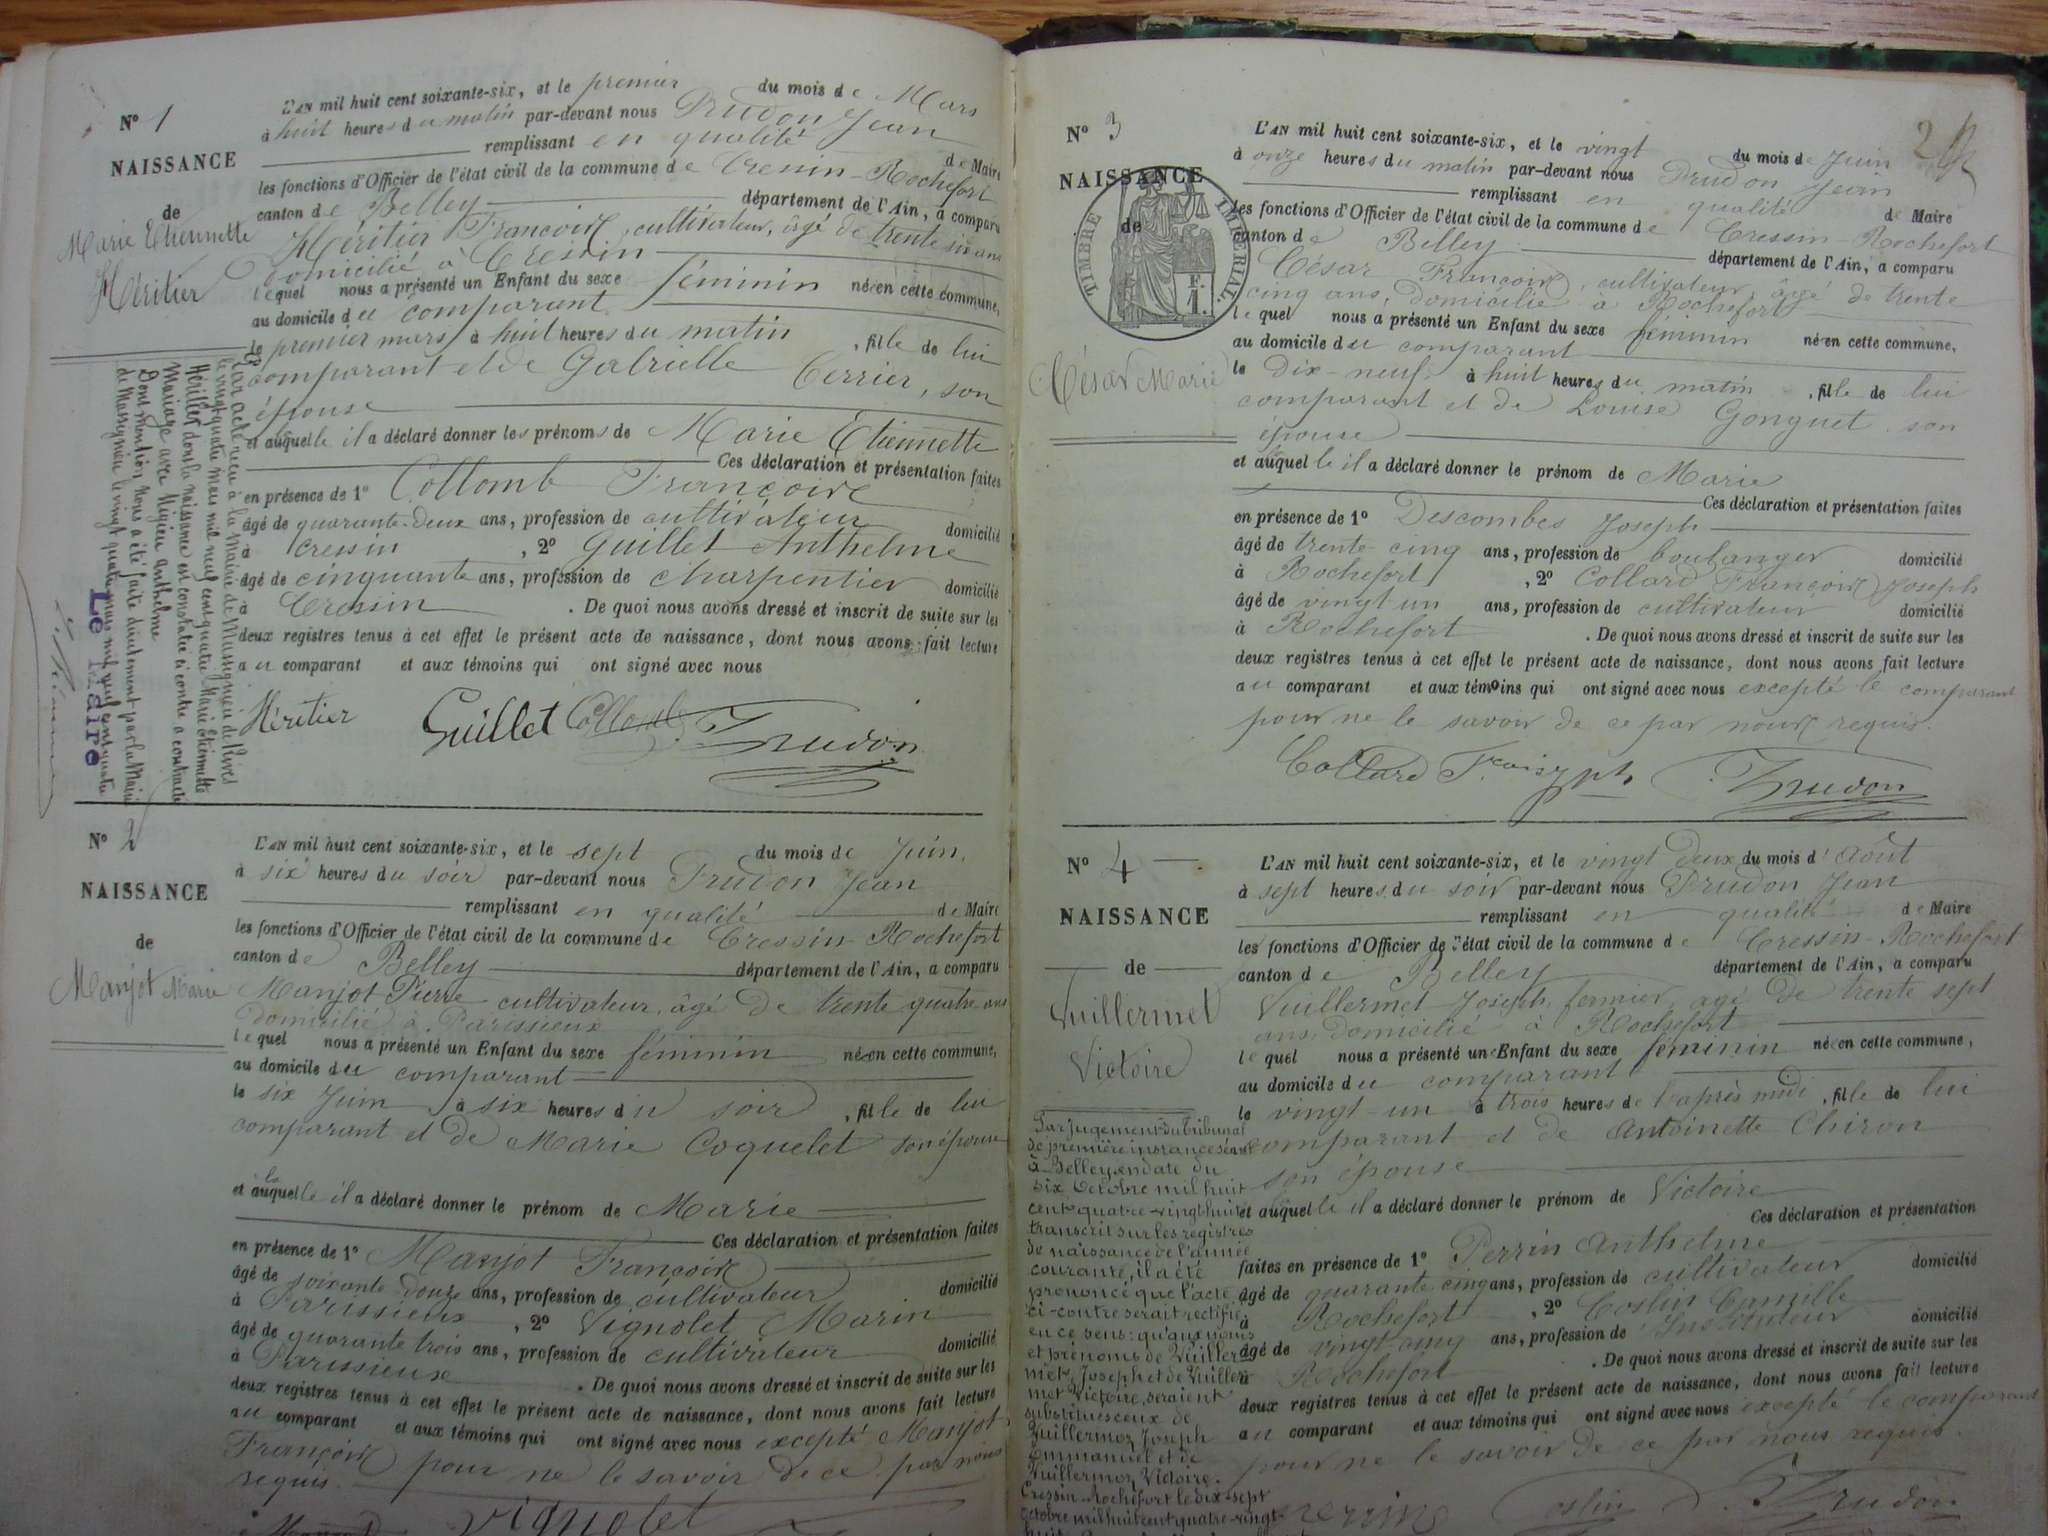 N° 1
NAISSANCE
de
Marie Etiennette
Héritier
L'AN mil huit cent soixante-six, et le premier du mois de Mars
à huit heures du matin par-devant nous Trudon Jean
remplissant en qualité de Maire
les fonctions d'Officier de l'état civil de la commune de Cressin-Rochefort
canton de Belley département de l'Ain, a comparu
Héritier François, cultivateur, âgé de trente six ans
domicilié à Cressin
lequel nous a présenté un Enfant du sexe féminin né en cette commune,
au domicile du comparant
le premier mars à huit heures du matin, fille de lui
comparant et de Gabrielle Cerrier, son
épouse
et auquelle il a déclaré donner les prénoms de Marie Étiennette
Ces déclaration et présentation faites
en présence de 1° Collomb François
âgé de quarante-deux ans, profession de cultivateur domicilié
à Cressin, 2° Guillet Anthelme
âgé de cinquante ans, profession de charpentier domicilié
à Cressin. De quoi nous avons dressé et inscrit de suite sur les
deux registres tenus à cet effet le présent acte de naissance, dont nous avons fait lecture
au comparant et aux témoins qui ont signé avec nous
Héritier Guillet Collomb Trudon
Par acte reçu à la Mairie de Massignieu de Rives
le vingt quatre mars mil neuf cent quatre Marie Etiennette
Héritier dont la naissance est constatée ci contre a contracté
Mariage avec Migieu Anthelme
Dont mention nous a été faite dûment par la Mairie
de Massignieu le vingt quatre mars mil neuf cent quatre
Le Maire
N° 2
NAISSANCE
de
Manjot Marie
L'AN mil huit cent soixante-six, et le sept du mois de Juin,
à six heures du soir par-devant nous Trudon Jean
remplissant en qualité de Maire
les fonctions d'Officier de l'état civil de la commune de Cressin-Rochefort
canton de Belley département de l'Ain, a comparu
Manjot Pierre cultivateur, âgé de trente quatre ans
domicilié à Parissieux
lequel nous a présenté un Enfant du sexe féminin né en cette commune,
au domicile du comparant
le six Juin à six heures du soir, fille de lui
comparant et de Marie Coquelet son épouse
et à laquelle il a déclaré donner le prénom de Marie
Ces déclaration et présentation faites
en présence de 1° Manjot François
âgé de soixante douze ans, profession de cultivateur domicilié
à Parissieux, 2° Vignolet Marin
âgé de quarante trois ans, profession de cultivateur domicilié
à Parissieux. De quoi nous avons dressé et inscrit de suite sur les
deux registres tenus à cet effet le présent acte de naissance, dont nous avons fait lecture
au comparant et aux témoins qui ont signé avec nous excepté Manjot
François pour ne le savoir de ce par nous
requis.
Vignolet
2
N° 3
NAISSANCE
de
TIMBRE IMPÉRIAL
1 F.
César Marie
L'AN mil huit cent soixante-six, et le vingt du mois de Juin
à onze heures du matin par-devant nous Trudon Jean
remplissant en qualité de Maire
les fonctions d'Officier de l'état civil de la commune de Cressin-Rochefort
canton de Belley département de l'Ain, a comparu
César François, cultivateur, âgé de trente
cinq ans, domicilié à Rochefort
lequel nous a présenté un Enfant du sexe féminin né en cette commune,
au domicile du comparant
le dix-neuf à huit heures du matin, fille de lui
comparant et de Louise Gonguet son
épouse
et auquelle il a déclaré donner le prénom de Marie
Ces déclaration et présentation faites
en présence de 1° Descombes Joseph
âgé de trente-cinq ans, profession de boulanger domicilié
à Rochefort, 2° Collard François Joseph
âgé de vingt-un ans, profession de cultivateur domicilié
à Rochefort. De quoi nous avons dressé et inscrit de suite sur les
deux registres tenus à cet effet le présent acte de naissance, dont nous avons fait lecture
au comparant et aux témoins qui ont signé avec nous excepté le comparant
pour ne le savoir de ce par nous requis.
Collard Trudon
N° 4
NAISSANCE
de
Vuillermet
Victoire
L'AN mil huit cent soixante-six, et le vingt deux du mois d'Août
à sept heures du soir par-devant nous Trudon Jean
remplissant en qualité de Maire
les fonctions d'Officier de l'état civil de la commune de Cressin-Rochefort
canton de Belley département de l'Ain, a comparu
Vuillermet Joseph, fermier, âgé de trente sept
ans, domicilié à Rochefort
lequel nous a présenté un Enfant du sexe féminin né en cette commune,
au domicile du comparant
le vingt-un à trois heures de l'après midi, fille de lui
comparant et de Antoinette Chiron
son épouse
et auquelle il a déclaré donner le prénom de Victoire
Ces déclaration et présentation
faites en présence de 1° Perrin Anthelme
âgé de quarante cinq ans, profession de cultivateur domicilié
à Rochefort, 2° Coslin Camille
âgé de vingt-cinq ans, profession de Instituteur domicilié
à Rochefort. De quoi nous avons dressé et inscrit de suite sur les
deux registres tenus à cet effet le présent acte de naissance, dont nous avons fait lecture
au comparant et aux témoins qui ont signé avec nous excepté le comparant
pour ne le savoir de ce par nous requis.
Perrin Coslin Trudon
Par jugement du tribunal
de première instance séant
à Belley en date du
six Octobre mil huit
cent quatre-vingt huit
transcrit sur les registres
de naissance de l'année
courante, il a été
prononcé que l'acte
ci-contre serait rectifié
en ce sens: qu'aux noms
et prénoms de Vuiller-
met, Joseph et de Vuiller-
met Victoire, seraient
substitués ceux de
Vuillermoz Joseph
Emmanuel et de
Vuillermoz Victoire.
Cressin-Rochefort le dix-sept
Octobre mil huit cent quatre-vingt-
huit